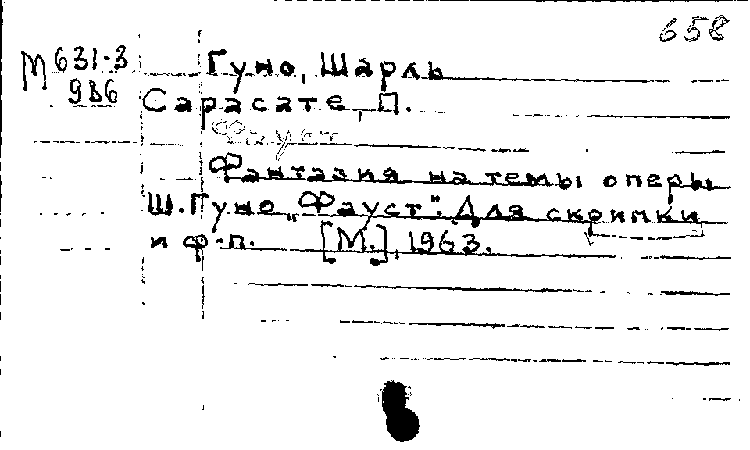 658
М 631-3
9В6
Гуно, Шарль
Сарасате, П.
Фауст
Фантазия на темы оперы
Ш. Гуно „Фауст“. Для скрипки
и ф-п. [М.], 1963.